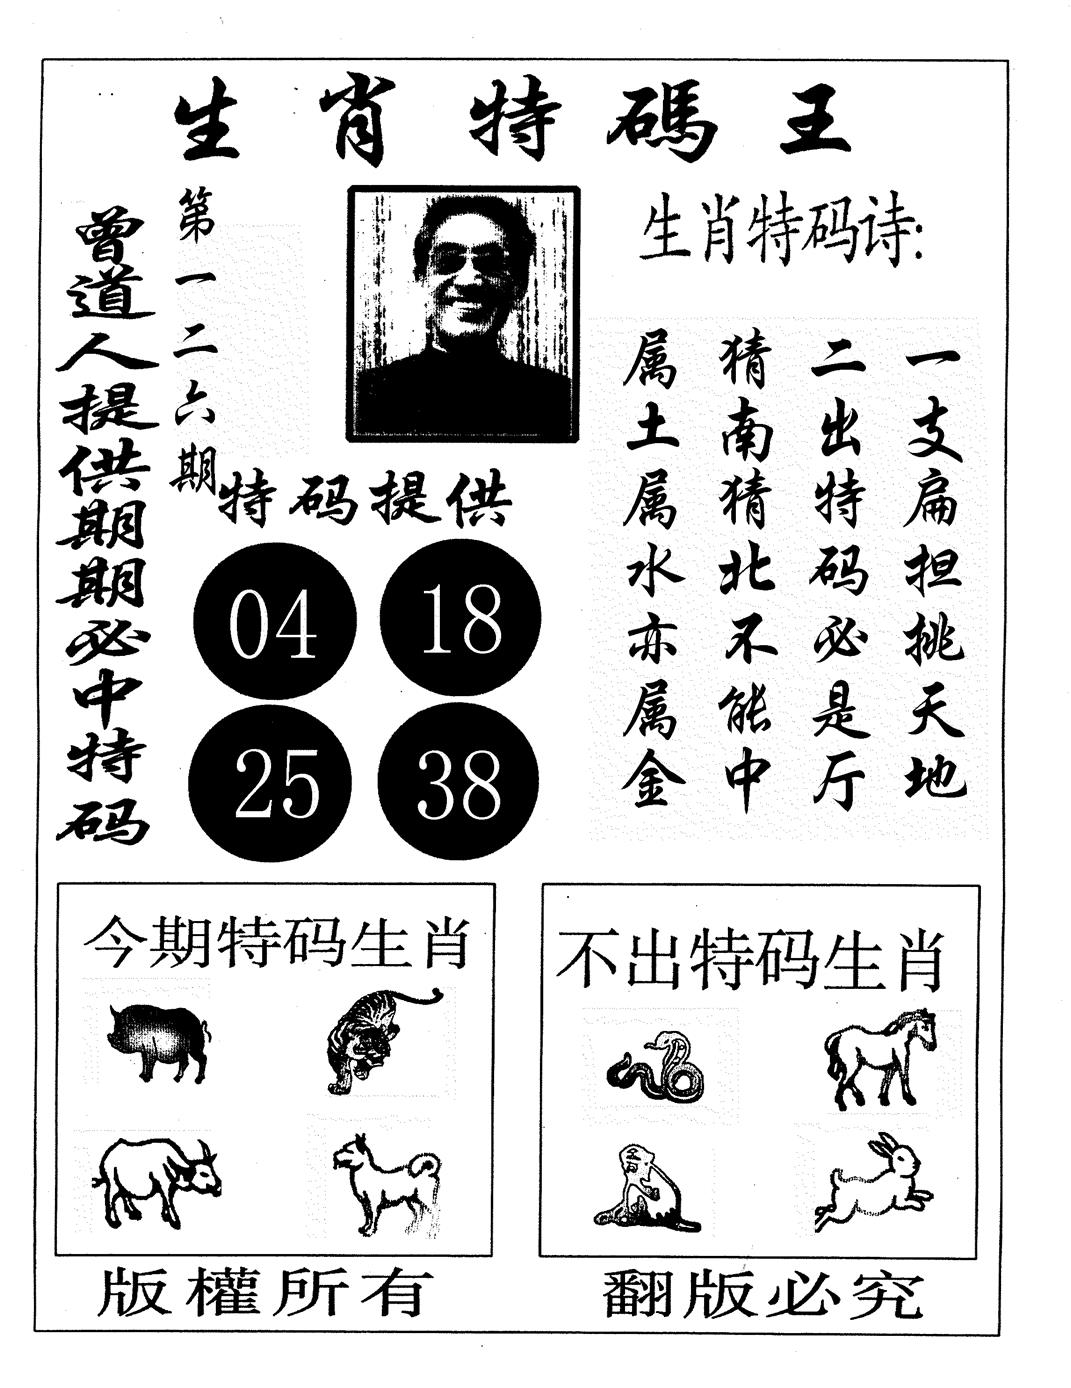 生肖特碼王
曾道人提供期期必中特码
第一二六期
生肖特码诗:
一支扁担挑天地
二出特码必是厅
猜南猜北不能中
属土属水亦属金
特码提供
04 18
25 38
今期特码生肖
不出特码生肖
版權所有
翻版必究